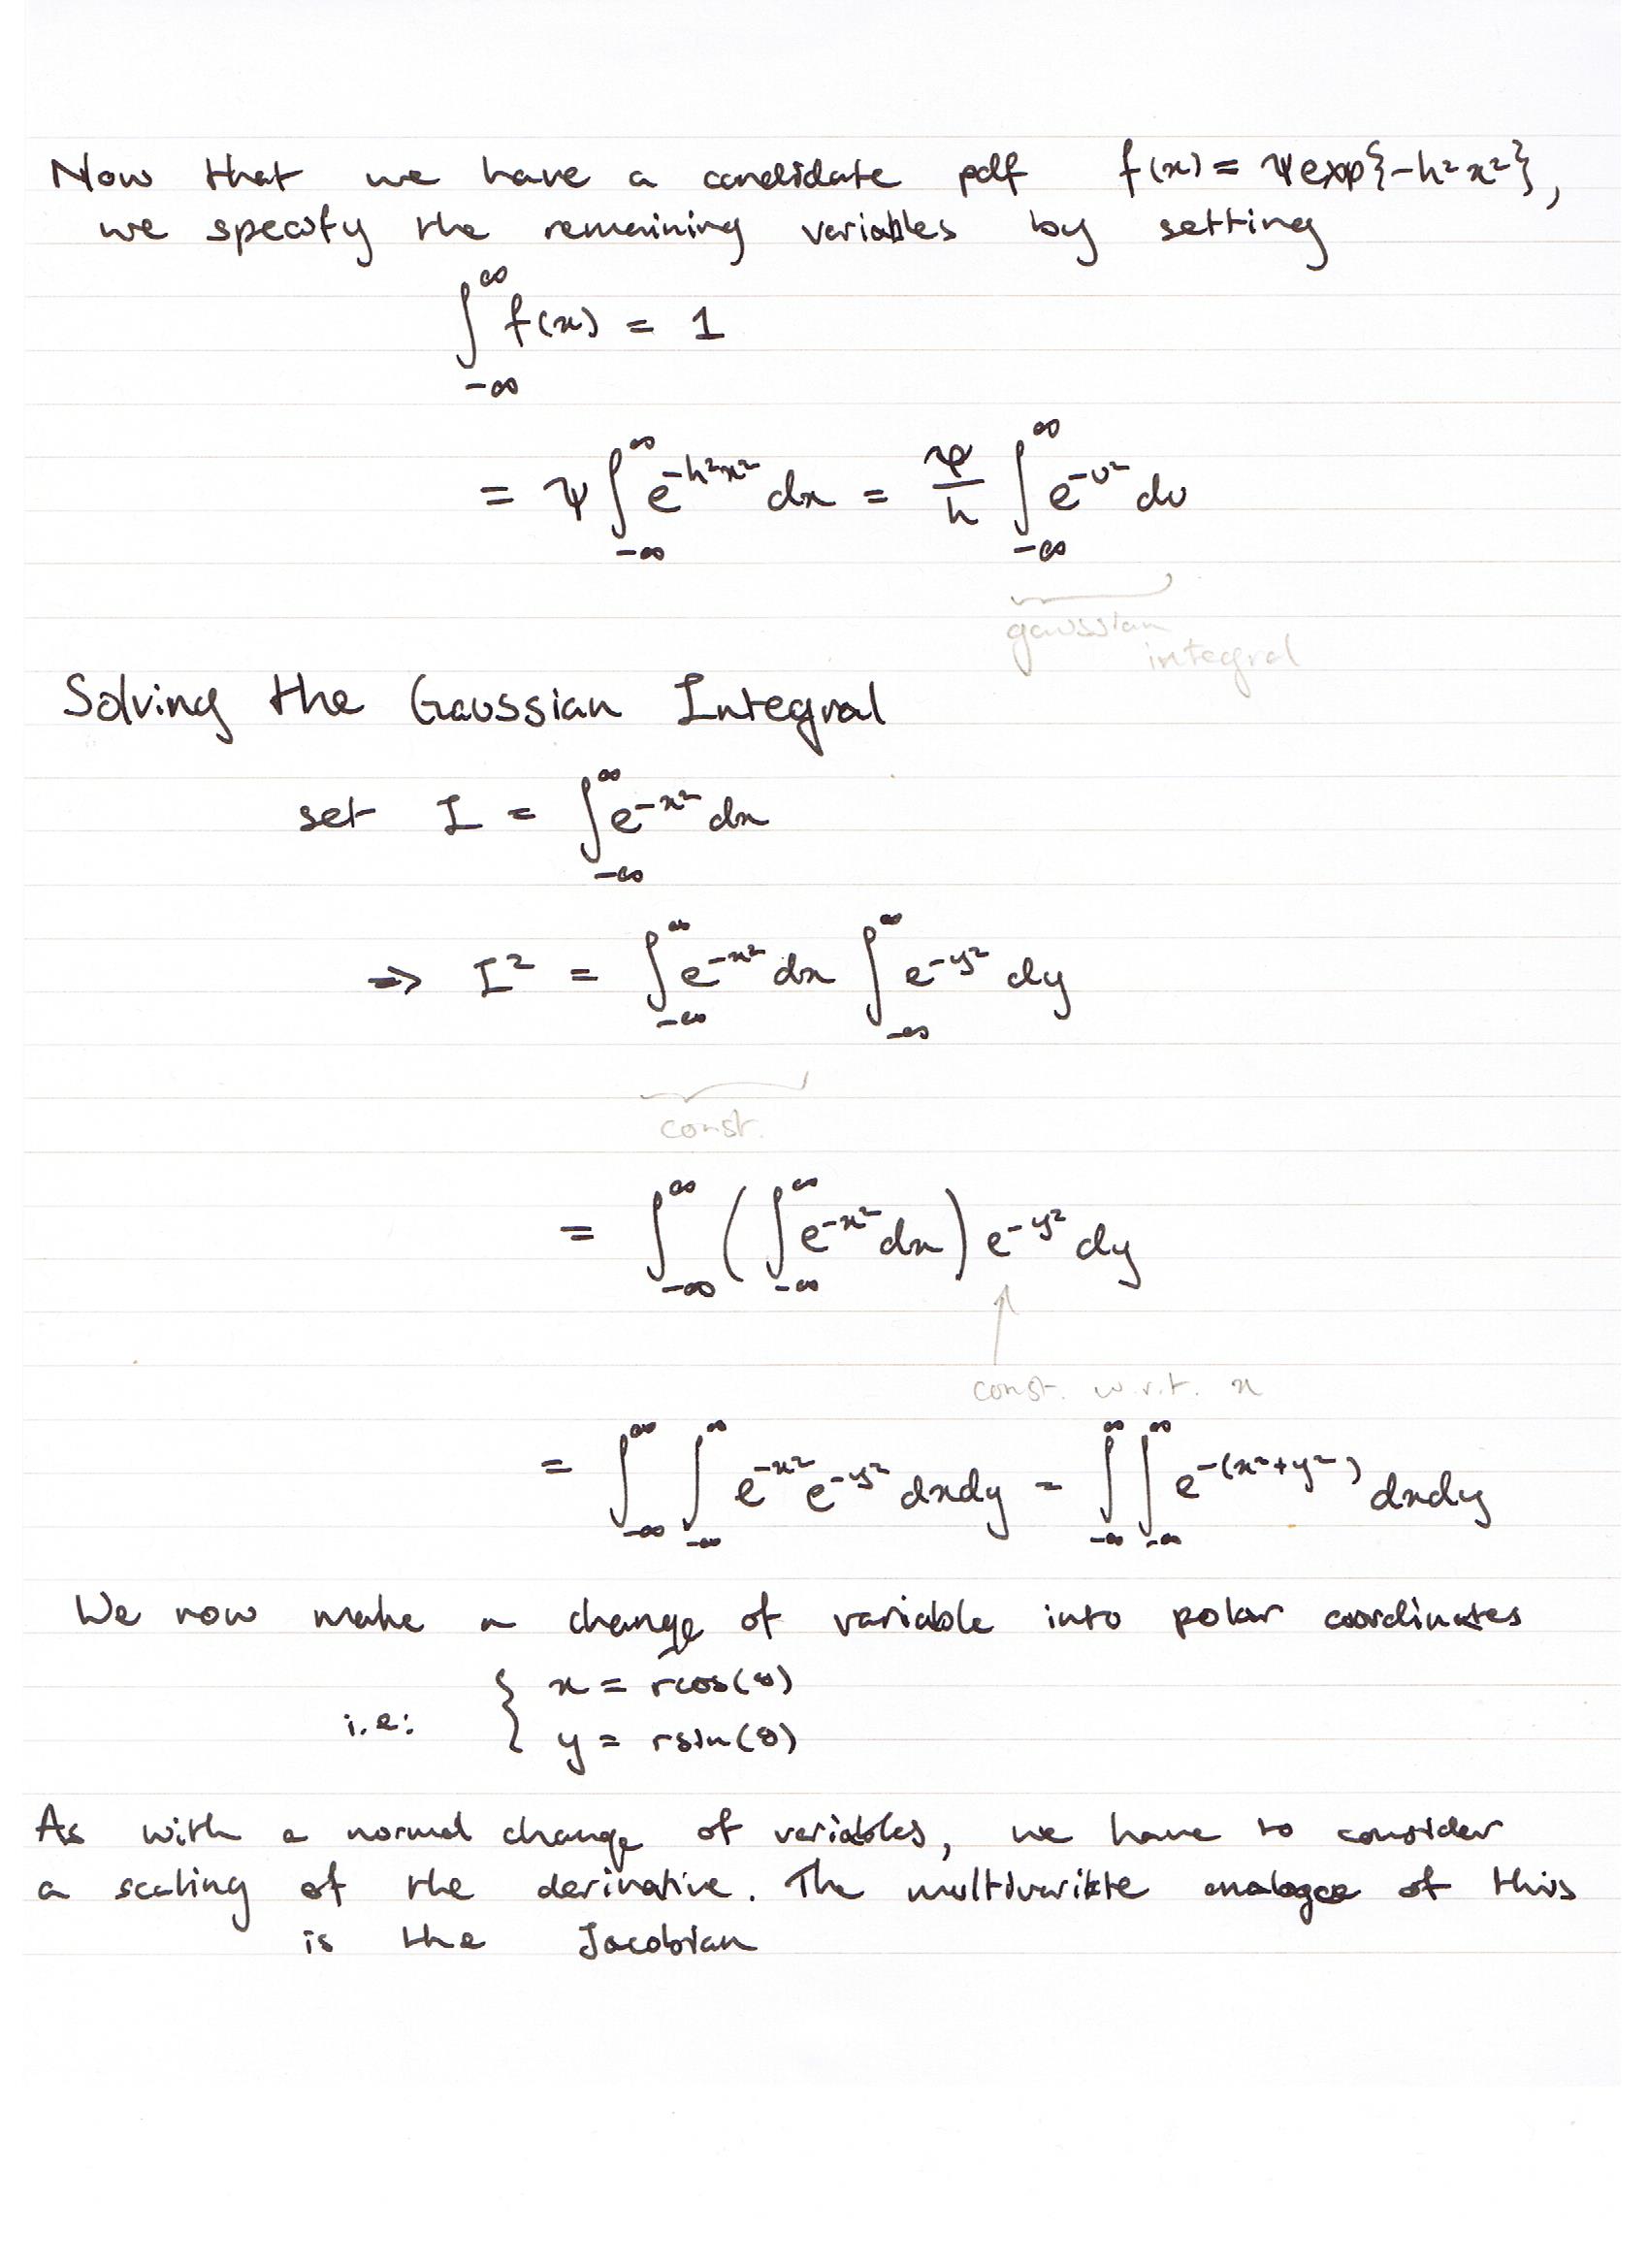 Now that we have a candidate pdf f(x) = ψexp{-h²x²},
we specify the remaining variables by setting
∫_{-∞}^{∞} f(x) = 1
= ψ∫_{-∞}^{∞} e^{-h²x²} dx = ψ/h ∫_{-∞}^{∞} e^{-u²} du
gaussian
integral
Solving the Gaussian Integral
set I = ∫_{-∞}^{∞} e^{-x²} dx
⇒ I² = ∫_{-∞}^{∞} e^{-x²} dx ∫_{-∞}^{∞} e^{-y²} dy
const.
= ∫_{-∞}^{∞} (∫_{-∞}^{∞} e^{-x²} dx) e^{-y²} dy
const. w.r.t. x
= ∫_{-∞}^{∞} ∫_{-∞}^{∞} e^{-x²} e^{-y²} dxdy = ∫_{-∞}^{∞} ∫_{-∞}^{∞} e^{-(x²+y²)} dxdy
We now make a change of variable into polar coordinates
i.e: { x = rcos(θ)
y = rsin(θ)
As with a normal change of variables, we have to consider
a scaling of the derivative. The multivariate analogee of this
is the Jacobian